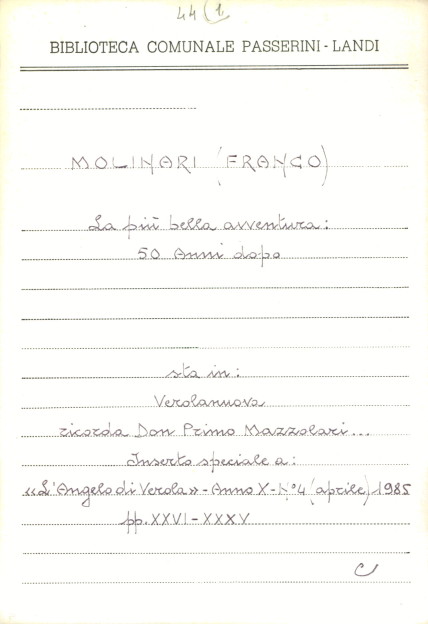 44 (1
BIBLIOTECA COMUNALE PASSERINI-LANDI
MOLINARI (FRANCO)
La più bella avventura:
50 Anni dopo
sta in:
Verolanuova
ricorda Don Primo Mazzolari...
Inserto speciale a:
«L'Angelo di Verola» - Anno X - N° 4 (aprile) 1985
pp. XXVI - XXXV
C